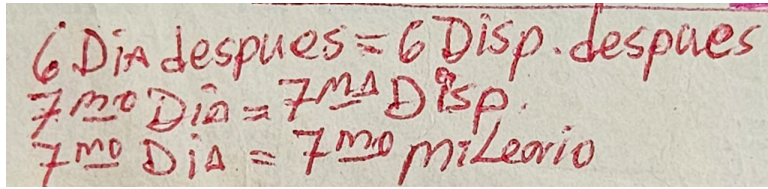 6 Dia despues = 6 Disp. despues
7mo Dia = 7ma Disp.
7mo Dia = 7mo mileario